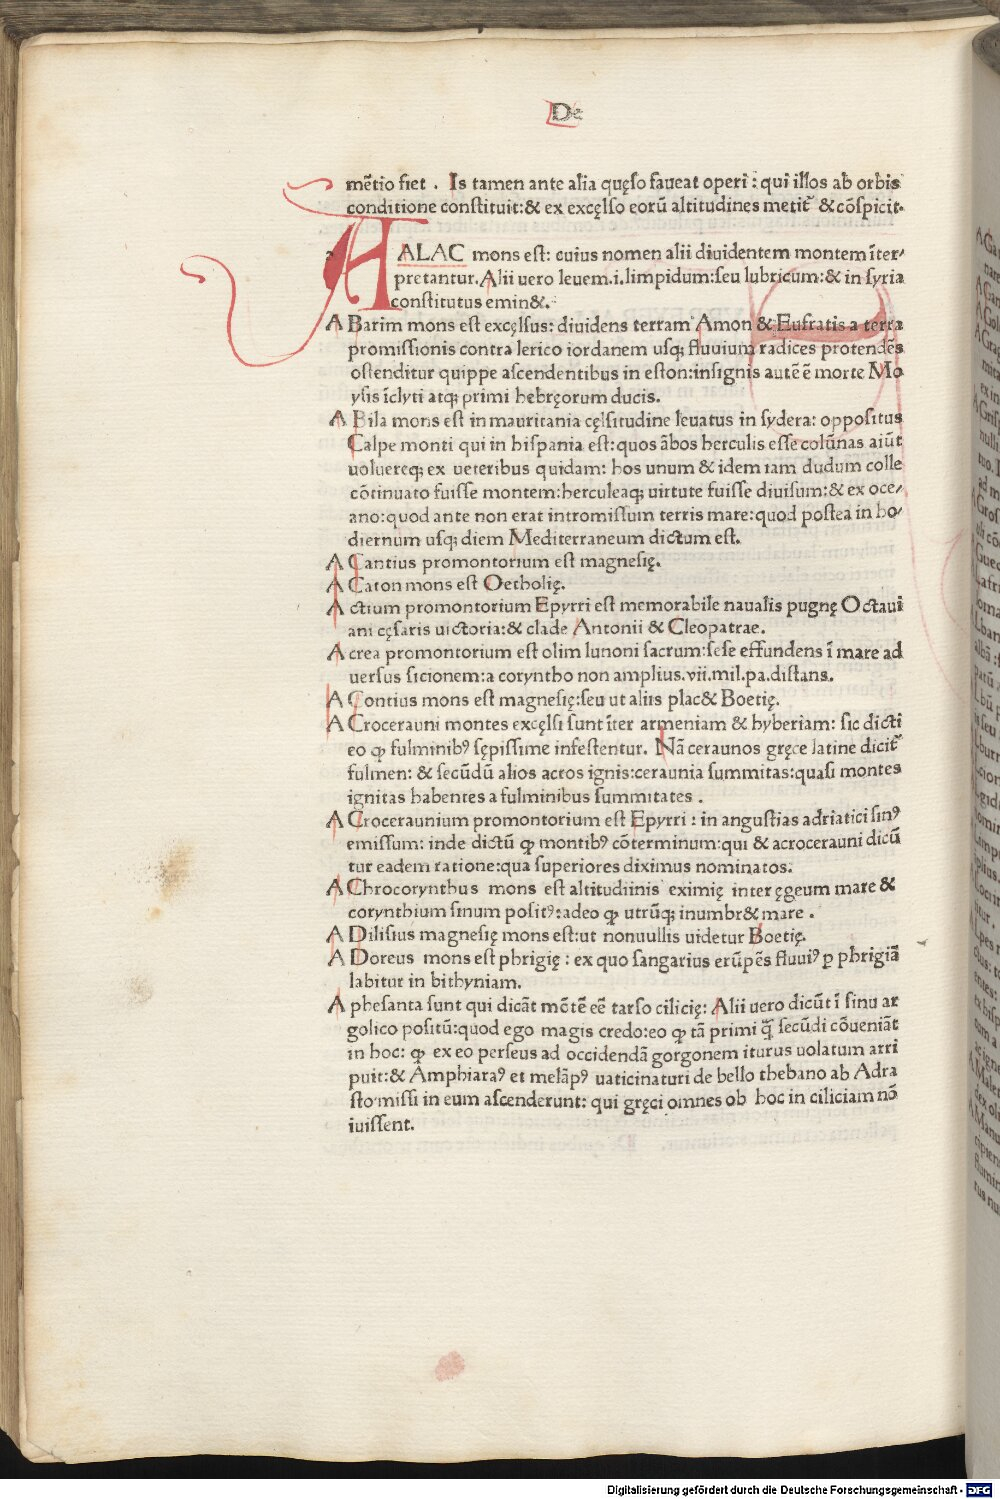 De
mētio fiet . Is tamen ante alia quęso faueat operi : qui illos ab orbis
conditione constituit:& ex excęlso eorū altitudines metit᷑ & cōspicit.
A ALAC mons est: cuius nomen alii diuidentem montem īter/
pretantur. Alii uero leuem .i. limpidum:seu lubricum:& in syria
constitutus emin&.
A Barim mons est excęlsus: diuidens terram Amon & Eufratis a terra
promissionis contra Ierico iordanem usq; fluuium radices protendēs
ostenditur quippe ascendentibus in eston:insignis autē ē morte Mo
ysis īclyti atq; primi hebręorum ducis.
A Bila mons est in mauritania cęlsitudine leuatus in sydera: oppositus
Calpe monti qui in hispania est:quos ābos herculis esse colūnas aiūt
uoluereq; ex ueteribus quidam: hos unum & idem iam dudum colle
cōtinuato fuisse montem:herculeaq; uirtute fuisse diuisum:& ex oce/
ano:quod ante non erat intromissum terris mare:quod postea in ho/
diernum usq; diem Mediterraneum dictum est.
A Cantius promontorium est magnesię.
A Caton mons est Oetholię.
A ctium promontorium Epyrri est memorabile naualis pugnę Octaui
ani cęsaris uictoria:& clade Antonii & Cleopatrae.
A crea promontorium est olim Iunoni sacrum:sese effundens ī mare ad
uersus sicionem:a coryntho non amplius.vii.mil.pa.distans.
A Contius mons est magnesię:seu ut aliis plac& Boetię.
A Crocerauni montes excęlsi sunt īter armeniam & hyberiam: sic dicti
eo ꝙ fulminibꝰ sępissime infestentur. Nā ceraunos gręce latine dicit᷑
fulmen: & secūdū alios acros ignis:ceraunia summitas:quasi montes
ignitas habentes a fulminibus summitates .
A Croceraunium promontorium est Epyrri : in angustias adriatici sinꝰ
emissum: inde dictū ꝙ montibꝰ cōterminum:qui & acrocerauni dicū
tur eadem ratione:qua superiores diximus nominatos.
A Chrocorynthus mons est altitudiinis eximię inter ęgeum mare &
corynthium sinum positꝰ:adeo ꝙ utrūq; inumbr& mare .
A Dilisius magnesię mons est:ut nonuullis uidetur Boetię.
A Doreus mons est phrigię : ex quo sangarius erūpēs fluuiꝰ ꝑ phrigiā
labitur in bithyniam.
A phesanta sunt qui dicāt mōtē eē tarso cilicię: Alii uero dicūt ī sinu ar
golico positū:quod ego magis credo:eo ꝙ tā primi q̄ secūdi cōueniāt
in hoc: ꝙ ex eo perseus ad occidendā gorgonem iturus uolatum arri
puit:& Amphiaraꝰ et melāpꝰ uaticinaturi de bello thebano ab Adra
sto missi in eum ascenderunt: qui gręci omnes ob hoc in ciliciam nō
iuissent.
Digitalisierung gefördert durch die Deutsche Forschungsgemeinschaft - DFG